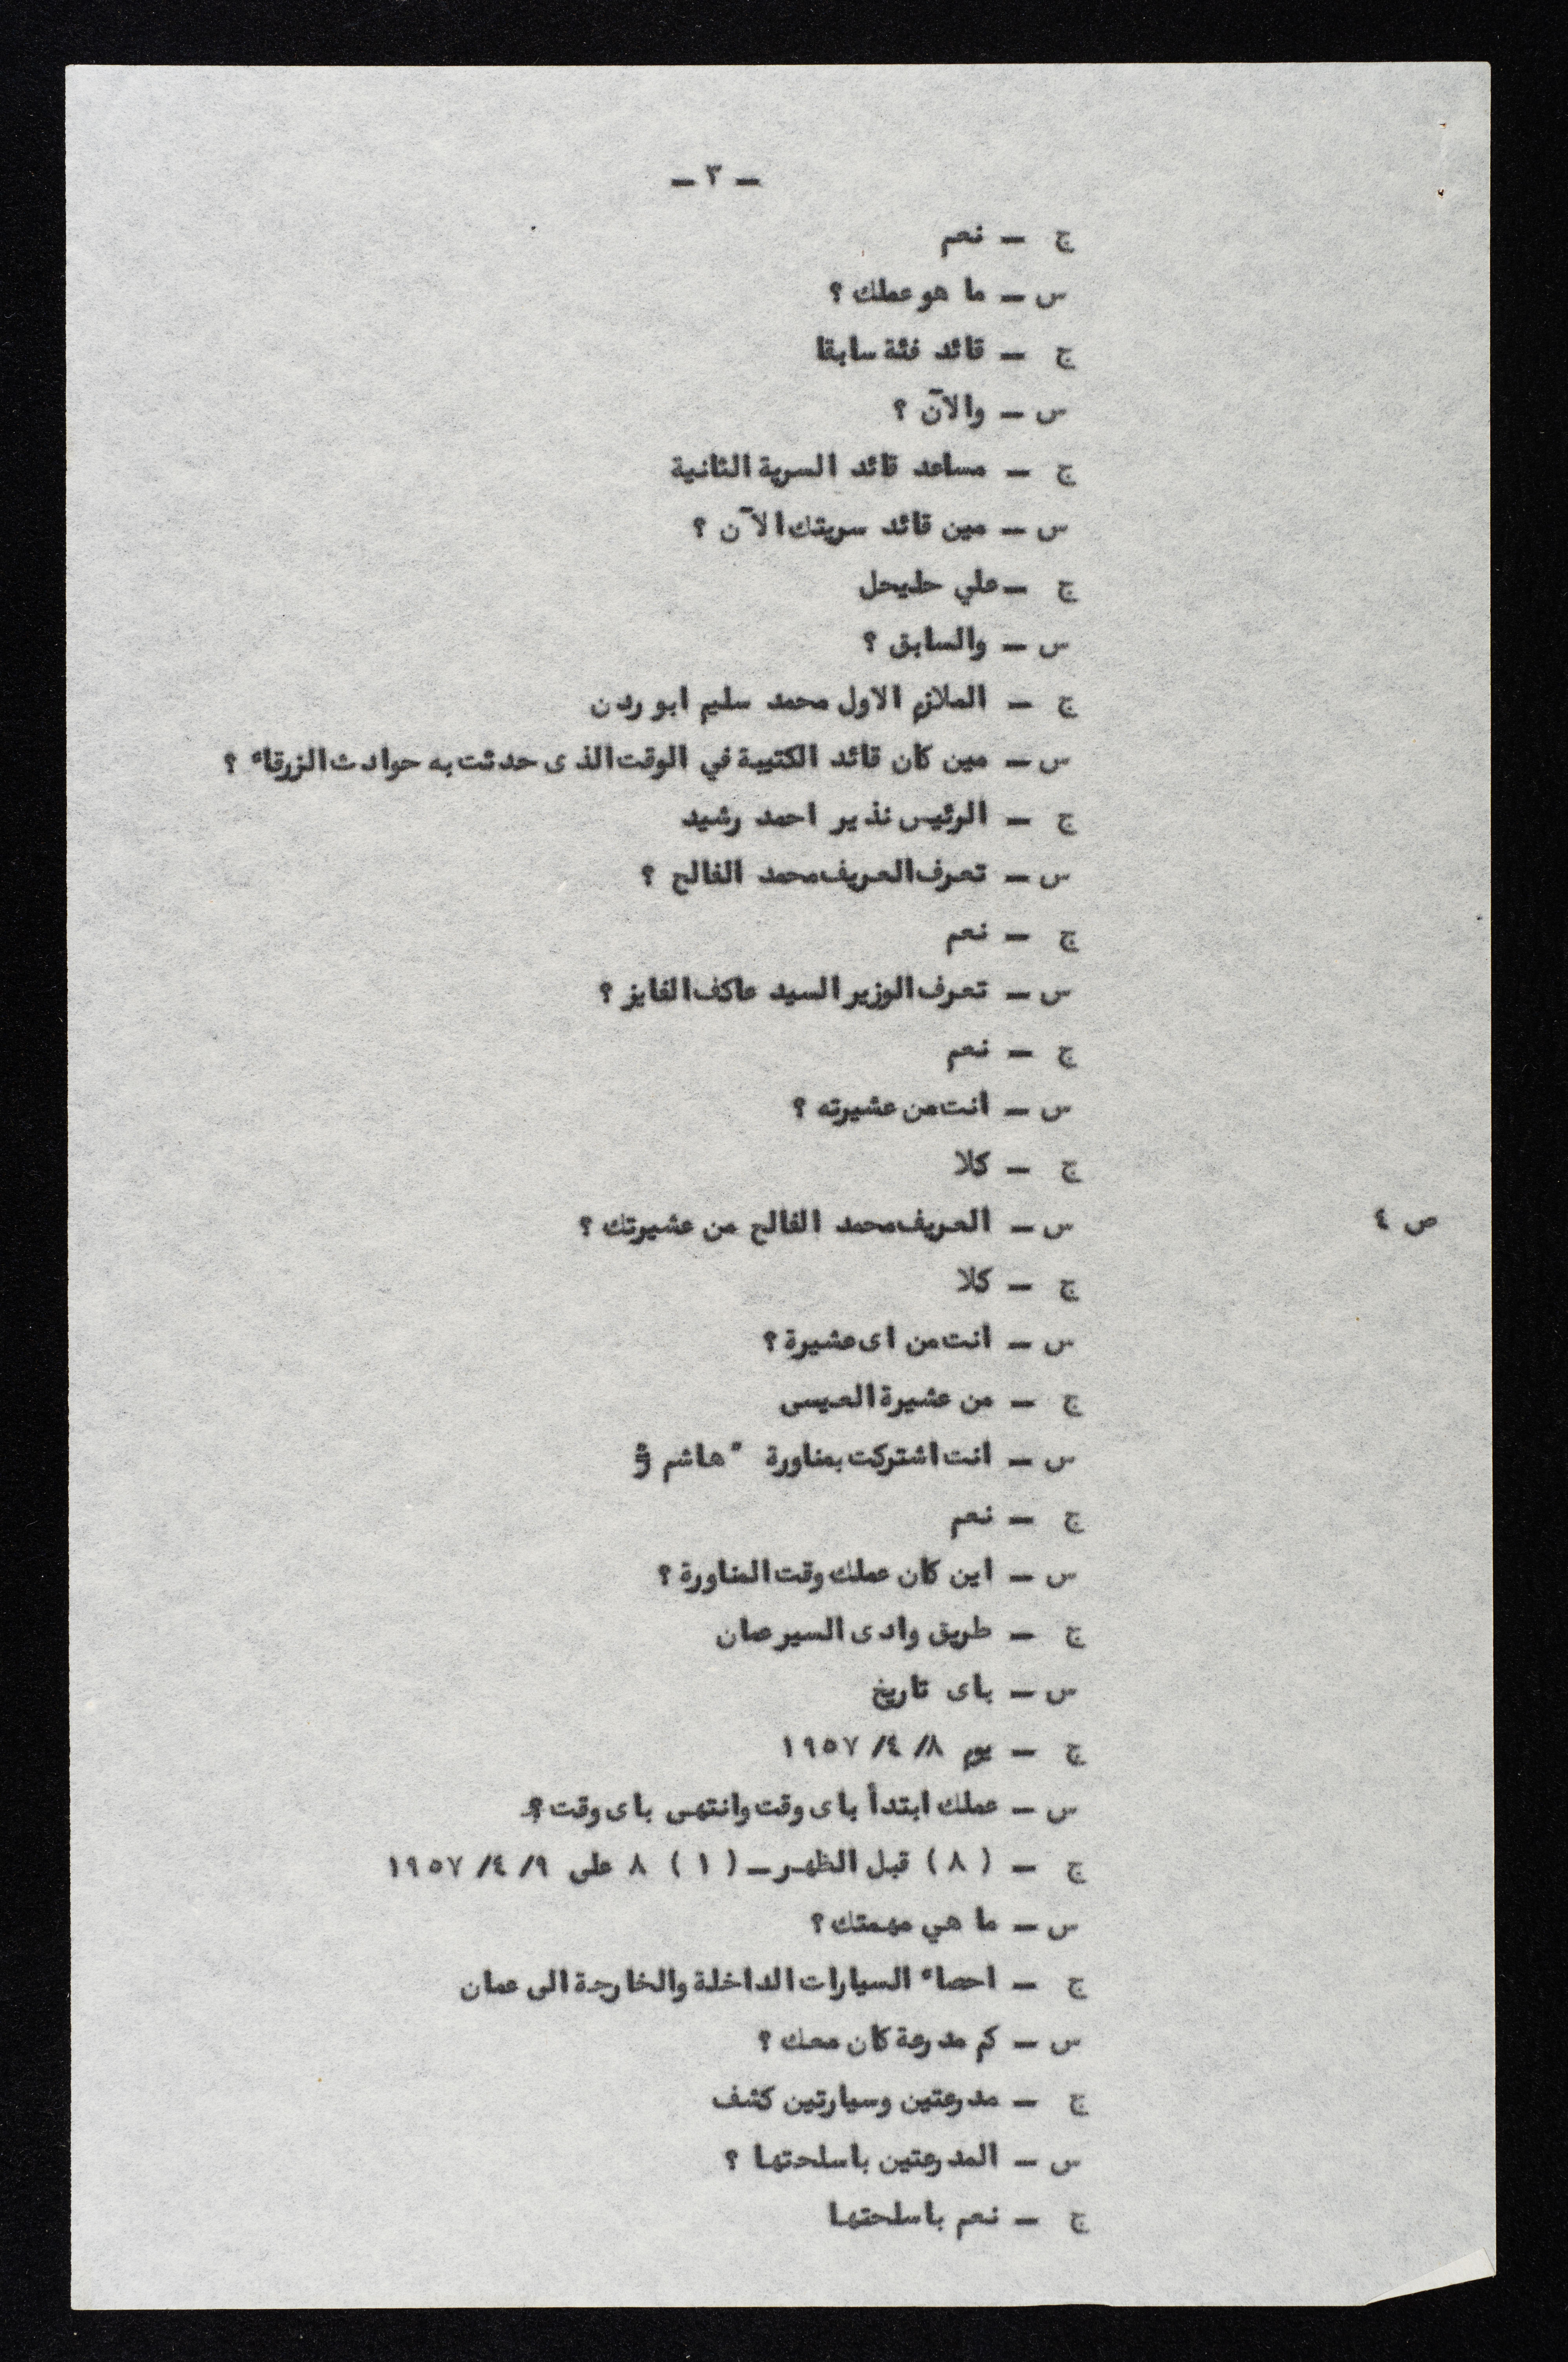 – ٣ –
ج – نعم
س – ما هو عملك ؟
ج – قائد فئة سابقا
س – والآن ؟
ج – مساعد قائد السرية الثانية
س – مين قائد سريتك الآن ؟
ج – علي حليحل
س – والسابق ؟
ج – الملازم الاول محمد سليم ابو ردن
س – مين كان قائد الكتيبة في الوقت الذى حدثت به حوادث الزرقاء ؟
ج – الرئيس نذير احمد رشيد
س – تعرف العريف محمد الفالح ؟
ج – نعم
س – تعرف الوزير السيد عاكف الفايز ؟
ج – نعم
س – انت من عشيرته ؟
ج – كلا
ص ٤ س – العريف محمد الفالح من عشيرتك ؟
ج – كلا
س – انت من اى عشيرة ؟
ج – من عشيرة العيسى
س – انت اشتركت بمناورة " هاشم
ج – نعم
س – اين كان عملك وقت المناورة ؟
ج – طريق وادى السير عمان
س – باى تاريخ
ج – يوم ٨/ ٤/ ١٩٥٧
س – عملك ابتدأ باى وقت وانتهى باى وقت ؟
ج – ( ٨ ) قبل الظهر – ( ١ ) ٨ على ٩/ ٤/ ١٩٥٧
س – ما هي مهمتك ؟
ج – احصاء السيارات الداخلة والخارجة الى عمان
س – كم مدرعة كان معك ؟
ج – مدرعتين وسيارتين كشف
س – المدرعتين باسلحتها ؟
ج – نعم باسلحتها